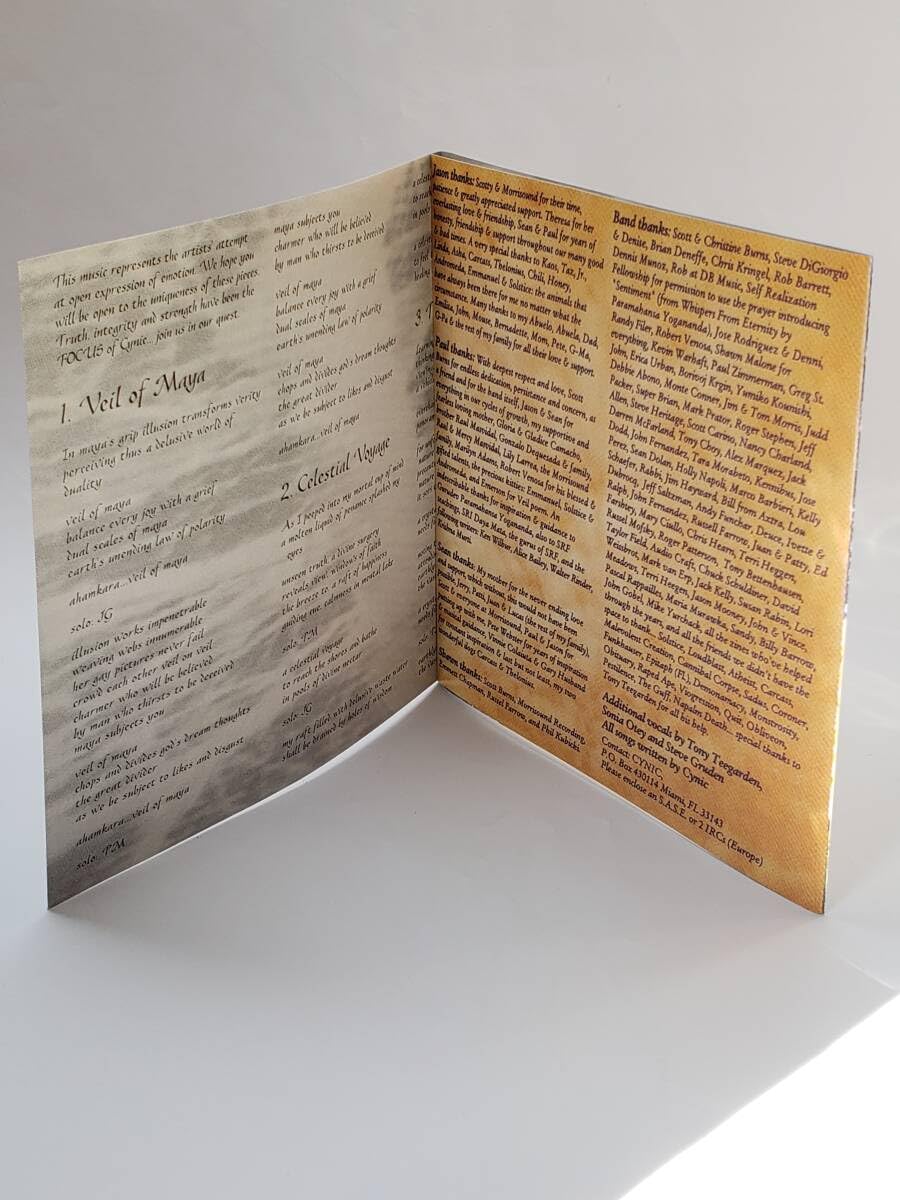 This music represents the artists' attempt
at open expression of emotion. We hope you
will be open to the uniqueness of these pieces.
Truth, integrity and strength have been the
FOCUS of Cynic... join us in our quest.
1. Veil of Maya
In maya's grip illusion transforms verity
perceiving thus a delusive world of
duality
veil of maya
balance every joy with a grief
dual scales of maya
earth's unending law of polarity
ahamkara...veil of maya
solo: JG
illusion works impenetrable
weaving webs innumerable
her gay pictures never fail
crowd each other veil on veil
charmer who will be believed
by man who thirsts to be deceived
maya subjects you
veil of maya
chops and divides god's dream thoughts
the great divider
as we be subject to likes and disgust
ahamkara...veil of maya
solo: PM
maya subjects you
charmer who will be believed
by man who thirsts to be deceived
veil of maya
balance every joy with a grief
dual scales of maya
earth's unending law of polarity
veil of maya
chops and divides god's dream thoughts
the great divider
as we be subject to likes and disgust
ahamkara...veil of maya
2. Celestial Voyage
As I peeped into my mortal cup of mind
a molten liquid of penance splashed my
eyes
unseen truth, a divine surgery
reveals view, window's of faith
the breeze to a raft of happiness
guiding me, calmness in mental lake
solo: PM
a celestial voyage
to reach the shores and bathe
in pools of divine nectar
solo: JG
my raft filled with delusive waste water
shall be drained by holes of wisdom
3.
Jason thanks: Scotty & Morrisound for their time,
patience & greatly appreciated support. Theresa for her
everlasting love & friendship, Sean & Paul for years of
honesty, friendship & support throughout our many good
& bad times. A very special thanks to Kaos, Taz, Jr.,
Linda, Asha, Carcass, Thelonius, Chili, Honey,
Andromeda, Emmanuel & Solstice: the animals that
have always been there for me no matter what the
circumstance. Many thanks to my Abuelo, Abuela, Dad,
Emilita, John, Mouse, Bernadette, Mom, Pete, G-Ma,
G-Pa & the rest of my family for all their love & support.
Paul thanks: With deepest respect and love, Scott
Burns for endless dedication, persistance and concern, as
friend and for the band itself, Jason & Sean for
everything in our cycles of growth, my supportive and
endless loving mother, Gloria & Gladice Camacho,
father Paul Masvidal, Gonzalo Dequesada & family,
& Mercy Masvidal, Lily Larrea, the Monkus
family, Marilyn Adams, Robert Venosa for his blessed &
talents, the precious kitties: Emmanuel, Solstice &
Andromeda, and Emerson for Veil poem. An
indescribable thanks for inspiration & guidance to
Paramahansa Yogananda, also to SRF
SRI Daya Mata, the gurus of SRF, and the
following writers: Ken Wilber, Alice Bailey, Walter Russler,
Muni.
Sean thanks: My mother for the never ending love
& support, which without, this would not have been
Jerry, Pati, Juan & Lucas (the rest of my family)
Scott & everyone at Morrisound, Paul & Jason for
putting up with me, Pete Webster for years of inspiration
& guidance, Vernie Colaiuta & Gary Husband
for inspiration & last but not least, my two
wonderful boys Carcass & Thelonius.
Shawn thanks: Scott Burns, Morrisound Recording,
Russell Farrow, and Phil Kubicki.
Band thanks: Scott & Christine Burns, Steve DiGiorgio
& Denise, Brian Deneffe, Chris Kringel, Rob Barrett,
Dennis Munoz, Rob at DB Music, Self Realization
Fellowship for permission to use the prayer introducing
"Sentiment" (from Whispers From Eternity by
Paramahansa Yogananda), Jose Rodriguez & Denni,
Randy Filer, Robert Venosa, Shawn Malone for
everything, Kevin Warhaft, Paul Zimmerman, Greg St.
John, Erica Urban, Borivoj Krgin, Yumiko Kounishi,
Debbie Abono, Monte Conner, Jim & Tom Morris, Judd
Packer, Super Brian, Mark Prator, Roger Stephen, Jeff
Allen, Steve Heritage, Scott Carino, Nancy Charland,
Darren McFarland, Tony Choy, Alex Marquez, Jack
Dodd, John Fernandez, Tara Morabuto, Kennibus, Jose
Perez, Sean Dolan, Holly Napoli, Marco Barbieri, Kelly
Schaefer, Rabbi, Jim Hayward, Bill from Aztra, Lou
Dubrocq, Jeff Saltzman, Andy Funchar, Deuce, Ivette &
Ralph, John Fernandes, Russell Farrow, Juan & Patty, Ed
Farshtey, Mary Ciullo, Chris Hearn, Terri Heggen,
Russel Mofsky, Roger Patterson, Tony Bettenhausen,
Taylor Field, Audio Craft, Chuck Schuldiner, David
Weisbrot, Mark van Erp, Jack Kelly, Susan Rabin, Lori
Meadows, Terri Hegen, Jason Mooney, John & Vince,
Pascal Rappailles, Maria Maruska, Sandy, Billy Barrow,
John Gobel, Mike Yurchack, all the zines who've helped
through the years, and all the friends we didn't have the
space to thank... Solstice, Loudblast, Atheist, Carcass,
Malevolent Creation, Cannibal Corpse, Saidus, Coroner,
Funkhauser, Epitaph (FL), Demonomacy, Monstrosity,
Obituary, Raped Ape, Viogression, Quit, Obliveon,
Pestilence, The Guff, Napalm Death..... special thanks to
Tony Teegarden for all his help.
Additional vocals by Tony Teegarden,
Sonia Otey and Steve Gruden
All songs written by Cynic
Contact: CYNIC
P.O. Box 430114 Miami, FL 33143
Please enclose an S.A.S.E. or 2 IRCs (Europe)